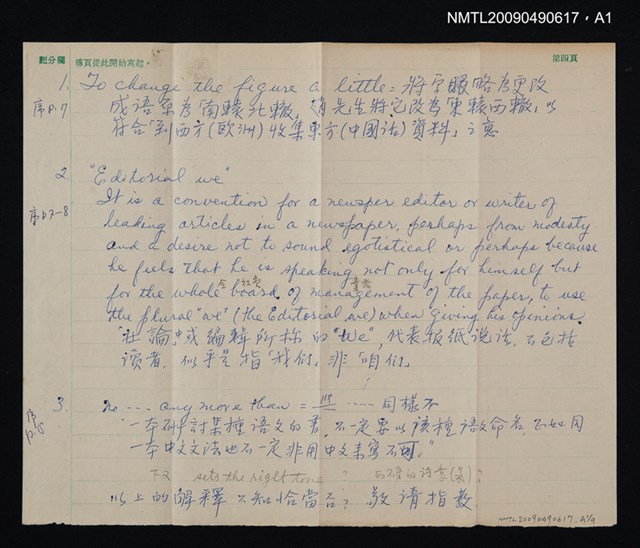 NMTL20090490617，A1
記分欄 每頁從此開始寫起。 第四頁
1. To change the figure a little = 將字眼略為更改
序p.17 成語原為南轅北轍，先生將它改為東轅西轍，以
符合「到西方(歐洲)收集東方(中國話)資料」之意
2. "Editorial we"
序p.7-8 It is a convention for a newsper editor or writer of
leading articles in a newspaper, perhaps from modesty
and a desire not to sound egotistical or perhaps because
he feels that he is speaking not only for himself but
for the whole board of management of the paper, to use
the plural "we" (the Editorial we) when giving his opinions.
"社論中或編輯所称的"We"，代表报纸说话，不包括
读者，似乎是指「我们」非「咱们」
3. no ... any more than = ..... 同樣不
"一本研討某種語文的書，不一定要以該種語文命名，正如用
一本中文文法也不一定非用中文来寫不可。"
sets the right tone ?
以上的解釋不知恰當否？敬请指教
NMTL20090490617，A1/9